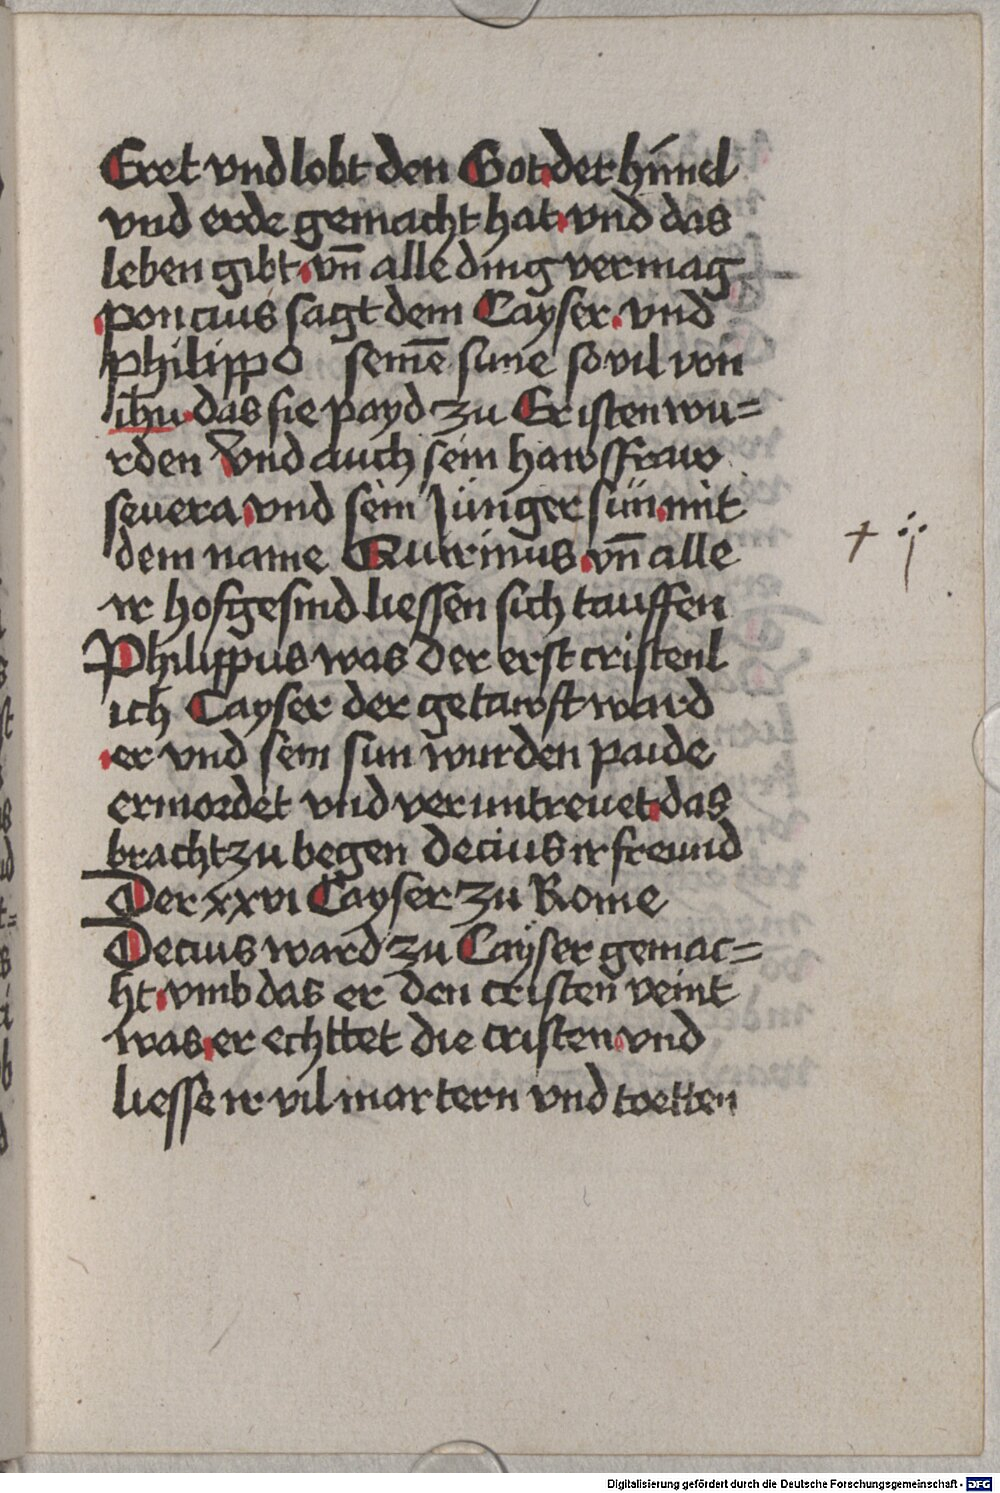 Eret vnd lobt den Got der himel
vnd erde gemacht hat vnd das
leben gibt vn̄ alle ding vermag
poncius sagt dem Cayser vnd
philippo seinē sune so vil von
ih̄u das sie payd zu Cristen wu=
rden Vnd auch sein hawsffraw
seuera vnd sein Jünger sün mit
dem name Quirinus vn̄ alle
ir hofgesind liessen sich tauffen
Philippus was der erst cristenl
ich Cayser der getawft ward
er vnd sein sun wurden paide
ermordet vnd veruntreuet das
bracht zu begen decius ir freund
Der xxvi Cayser zu Rome
Decius ward zu Cayser gemac=
ht vmb das er den cristen veint
was er echttet die cristen vnd
liesse ir vil martern vnd toetten
Digitalisierung gefördert durch die Deutsche Forschungsgemeinschaft - DFG